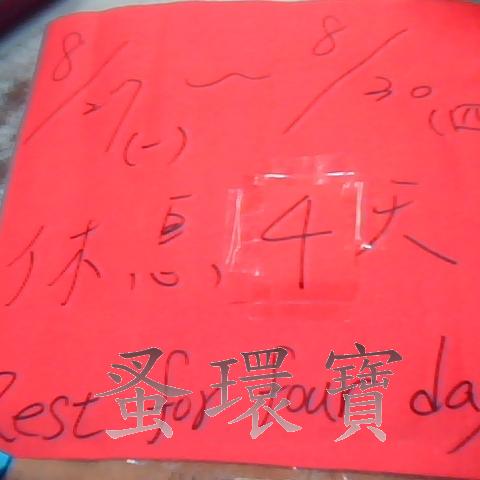 8/27(一)～8/30(四
休息4天
Rest for four day
蚤環寶